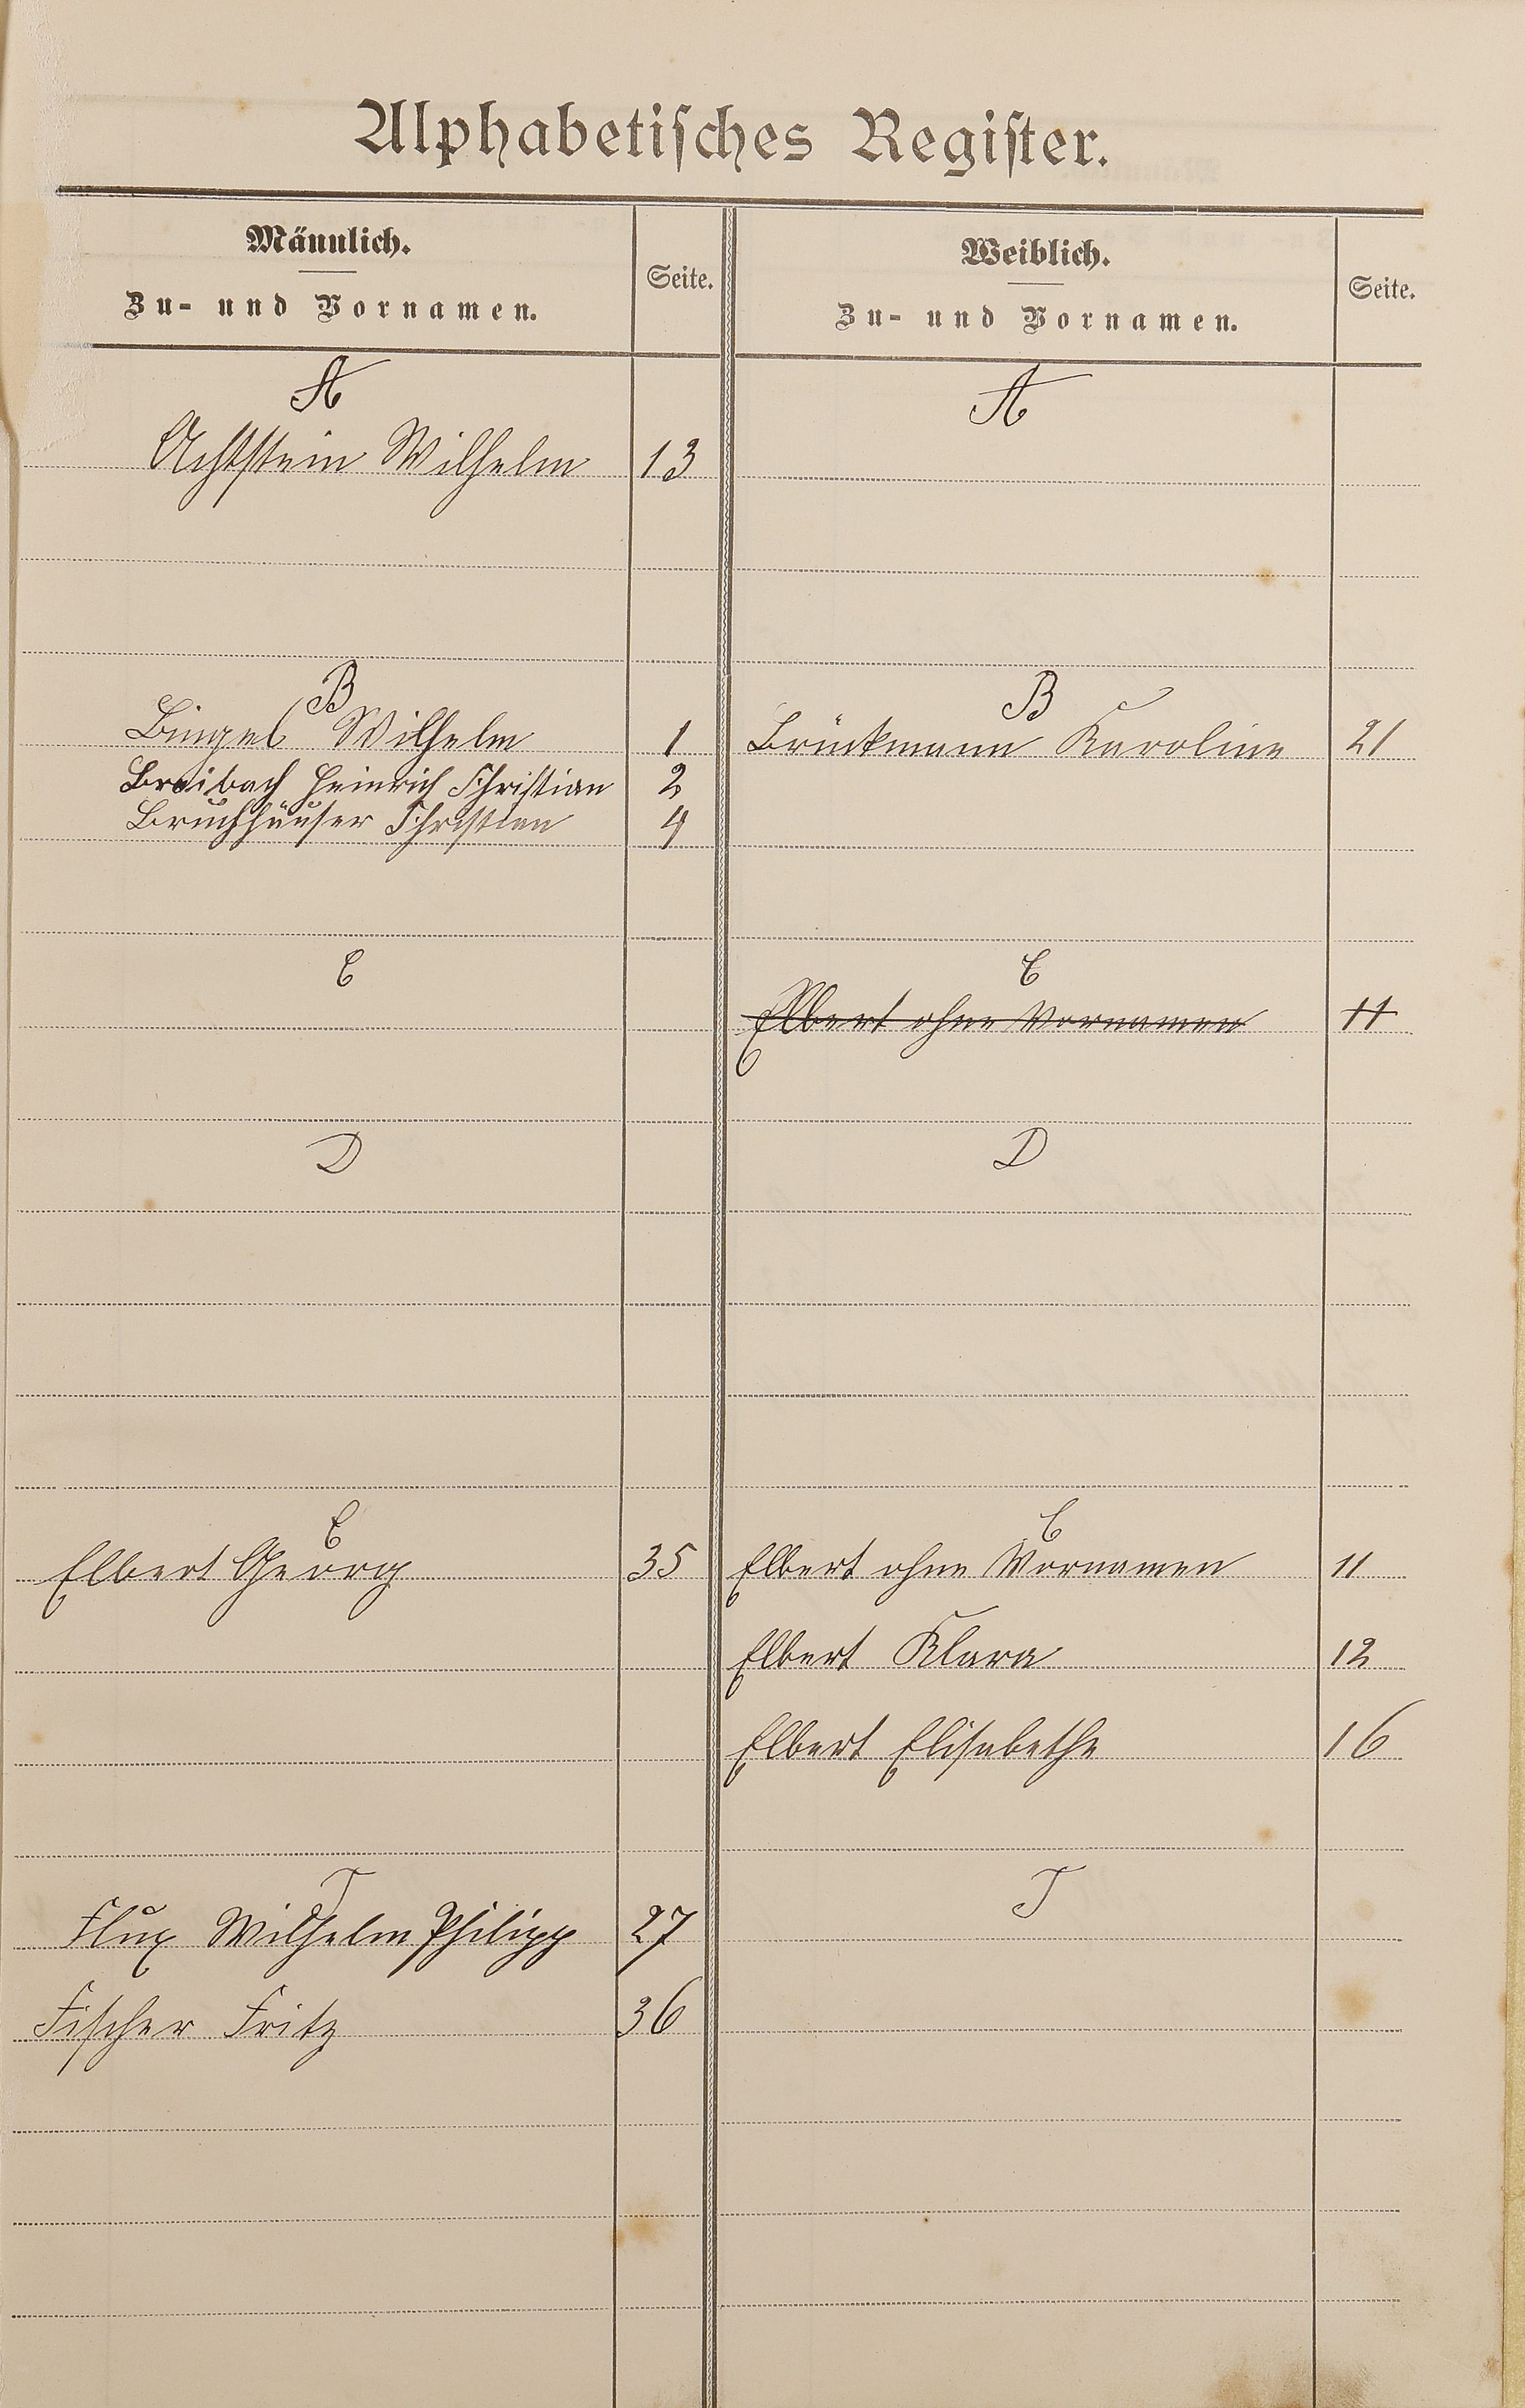 Alphabetisches Register.
Männlich.
Zu- und Vornamen.
Seite.
Weiblich.
Zu- und Vornamen.
Seite.
A
A
Achtstein Wilhelm 13
B
B
Bingel Wilhelm 1 Brückmann Karoline 21
Breibach Heinrich Christian 2
Bruchhäuser Christian 4
C
C
Elbert ohne Vornamen 11
D
D
E
E
Elbert Georg 35 Elbert ohne Vornamen 11
Elbert Klara 12
Elbert Elisabethe 16
F
F
Flux Wilhelm Philipp 27
Fischer Fritz 36